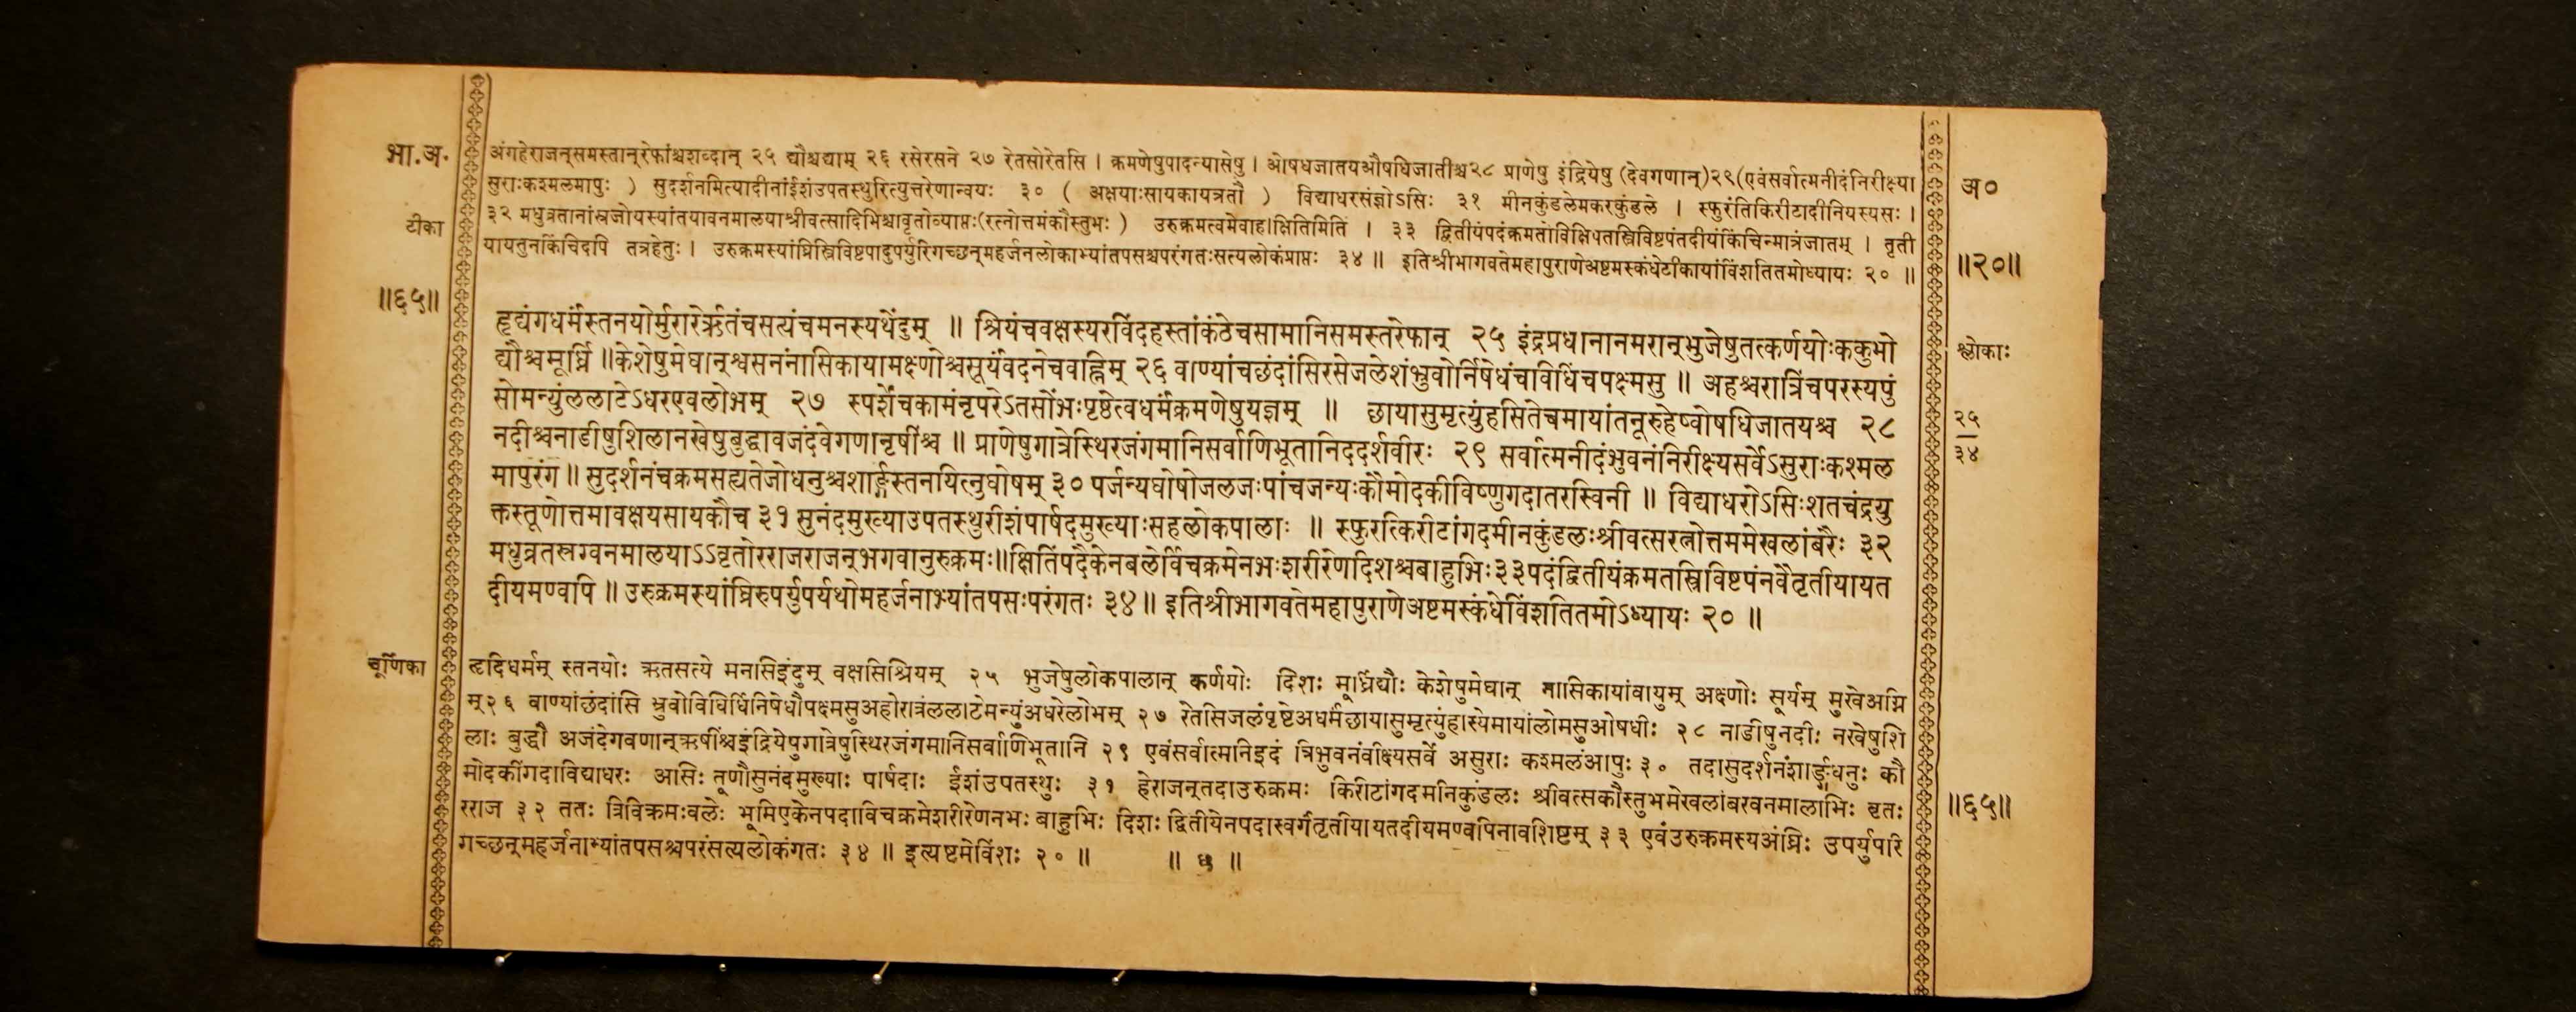 भा.अ.
टीका
॥६५॥
अंगहेराजन्समस्तान्रेफांश्चशब्दान् २५ द्यौश्चद्याम् २६ रसेरसने २७ रेतसोरेतसि । क्रमणेषुपादन्यासेषु । ओषधजातयऔषधिजातीश्च२८ प्राणेषु इंद्रियेषु (देवगणान्)२९(एवंसर्वात्मनीदंनिरीक्ष्या
सुराःकश्मलमापुः ) सुदर्शनमित्यादीनांईशंउपतस्थुरित्युत्तरेणान्वयः ३० ( अक्षयाःसायकायत्रतौ ) विद्याधरसंज्ञोऽसिः ३१ मीनकुंडलेमकरकुंडले । स्फुरंतिकिरीटादीनियस्यसः ।
३२ मधुव्रतानांस्रजोयस्यांतयावनमालयाश्रीवत्सादिभिश्चावृतोव्याप्तः(रत्नोत्तमंकौस्तुभः ) उरुक्रमत्वमेवाह।क्षितिमिति । ३३ द्वितीयंपदंक्रमतोविक्षिपतस्त्रिविष्टपंतदीयंकिंचिन्मात्रंजातम् । तृती
यायतुनकिंचिदपि तत्रहेतुः । उरुक्रमस्यांघ्रिस्त्रिविष्टपादुपर्युपरिगच्छन्महर्जनलोकाभ्यांतपसश्चपरंगतःसत्यलोकंप्राप्तः ३४ ॥ इतिश्रीभागवतेमहापुराणेअष्टमस्कंधेटीकायांविंशतितमोध्यायः २० ॥
हृद्यंगधर्मंस्तनयोर्मुरारेर्ऋतंचसत्यंचमनस्यथेंदुम् ॥ श्रियंचवक्षस्यरविंदहस्तांकंठेचसामानिसमस्तरेफान् २५ इंद्रप्रधानानमरान्भुजेषुतत्कर्णयोःककुभो
द्यौश्चमूर्ध्नि ॥केशेषुमेघान्श्वसनंनासिकायामक्ष्णोश्चसूर्यंवदनेचवह्निम् २६ वाण्यांचछंदांसिरसेजलेशंभ्रुवोर्निषेधंचविधिंचपक्ष्मसु ॥ अहश्चरात्रिंचपरस्यपुं
सोमन्युंललाटेऽधरएवलोभम् २७ स्पर्शेचकामंनृपरेऽतसोंभःपृष्ठेत्वधर्मंक्रमणेषुयज्ञम् ॥ छायासुमृत्युंहसितेचमायांतनूरुहेष्वोषधिजातयश्च २८
नदीश्चनाडीषुशिलानखेषुबुद्धावजंदेवेगणानृषींश्च ॥ प्राणेषुगात्रेस्थिरजंगमानिसर्वाणिभूतानिददर्शवीरः २९ सर्वात्मनीदंभुवनंनिरीक्ष्यसर्वेऽसुराःकश्मल
मापुरंग ॥ सुदर्शनंचक्रमसह्यतेजोधनुश्चशार्ङ्गंस्तनयित्नुघोषम् ३० पर्जन्यघोषोजलजःपांचजन्यःकौमोदकीविष्णुगदातरस्विनी ॥ विद्याधरोऽसिःशतचंद्रयु
क्तस्तूणोत्तमावक्षयसायकौच ३१ सुनंदमुख्याउपतस्थुरीशंपार्षदमुख्याःसहलोकपालाः ॥ स्फुरत्किरीटांगदमीनकुंडलःश्रीवत्सरत्नोत्तममेखलांबरैः ३२
मधुव्रतस्रग्वनमालयाऽऽवृतोरराजराजन्भगवानुरुक्रमः॥क्षितिंपदैकेनबलेर्विचक्रमेनभःशरीरेणदिशश्चबाहुभिः३३पदंद्वितीयंक्रमतस्त्रिविष्टपंनवैतृतीयायत
दीयमण्वपि ॥ उरुक्रमस्यांघ्रिरुपर्युपर्यथोमहर्जनाभ्यांतपसःपरंगतः ३४॥ इतिश्रीभागवतेमहापुराणेअष्टमस्कंधेविंशतितमोऽध्यायः २० ॥
चूर्णिका
हृदिधर्मम् स्तनयोः ऋतसत्ये मनसिइंदुम् वक्षसिश्रियम् २५ भुजेषुलोकपालान् कर्णयोः दिशः मूर्ध्निद्यौः केशेषुमेघान् नासिकायांवायुम् अक्ष्णोः सूर्यम् मुखेअग्नि
म्२६ वाण्यांछंदांसि भ्रुवोविधिर्धिनिषेधौपक्ष्मसुअहोरात्रंललाटेमन्युंअधरेलोभम् २७ रेतसिजलंपृष्टेअधर्मंछायासुमृत्युंहास्येमायांलोमसुओषधीः २८ नाडीषुनदीः नखेषुशि
लाः बुद्धौ अजंदेगवणान्ऋषींश्चइंद्रियेषुगात्रेषुस्थिरजंगमानिसर्वाणिभूतानि २९ एवंसर्वात्मनिइदं त्रिभुवनंवीक्ष्यसर्वे असुराः कश्मलंआपुः ३० तदासुदर्शनंशार्ङ्गंधनुः कौ
मोदकींगदाविद्याधरः आसिः तूणौसुनंदमुख्याः पार्षदाः ईशंउपतस्थुः ३१ हेराजन्तदाउरुक्रमः किरीटांगदमनिकुंडलः श्रीवत्सकौस्तुभमेखलांबरवनमालाभिः वृतः
रराज ३२ ततः त्रिविक्रमःवलेः भूमिंएकेनपदाविचक्रमेशरीरेणनभः बाहुभिः दिशः द्वितीयेनपदास्वर्गंतृतीयायतदीयमण्वपिनावशिष्टम् ३३ एवंउरुक्रमस्यअंघ्रिः उपर्युपरि
गच्छन्महर्जनाभ्यांतपसश्चपरंसत्यलोकंगतः ३४ ॥ इत्यष्टमेविंशः २० ॥ ॥ ७ ॥
अ०
॥२०॥
श्लोकाः
२५
३४
॥६५॥